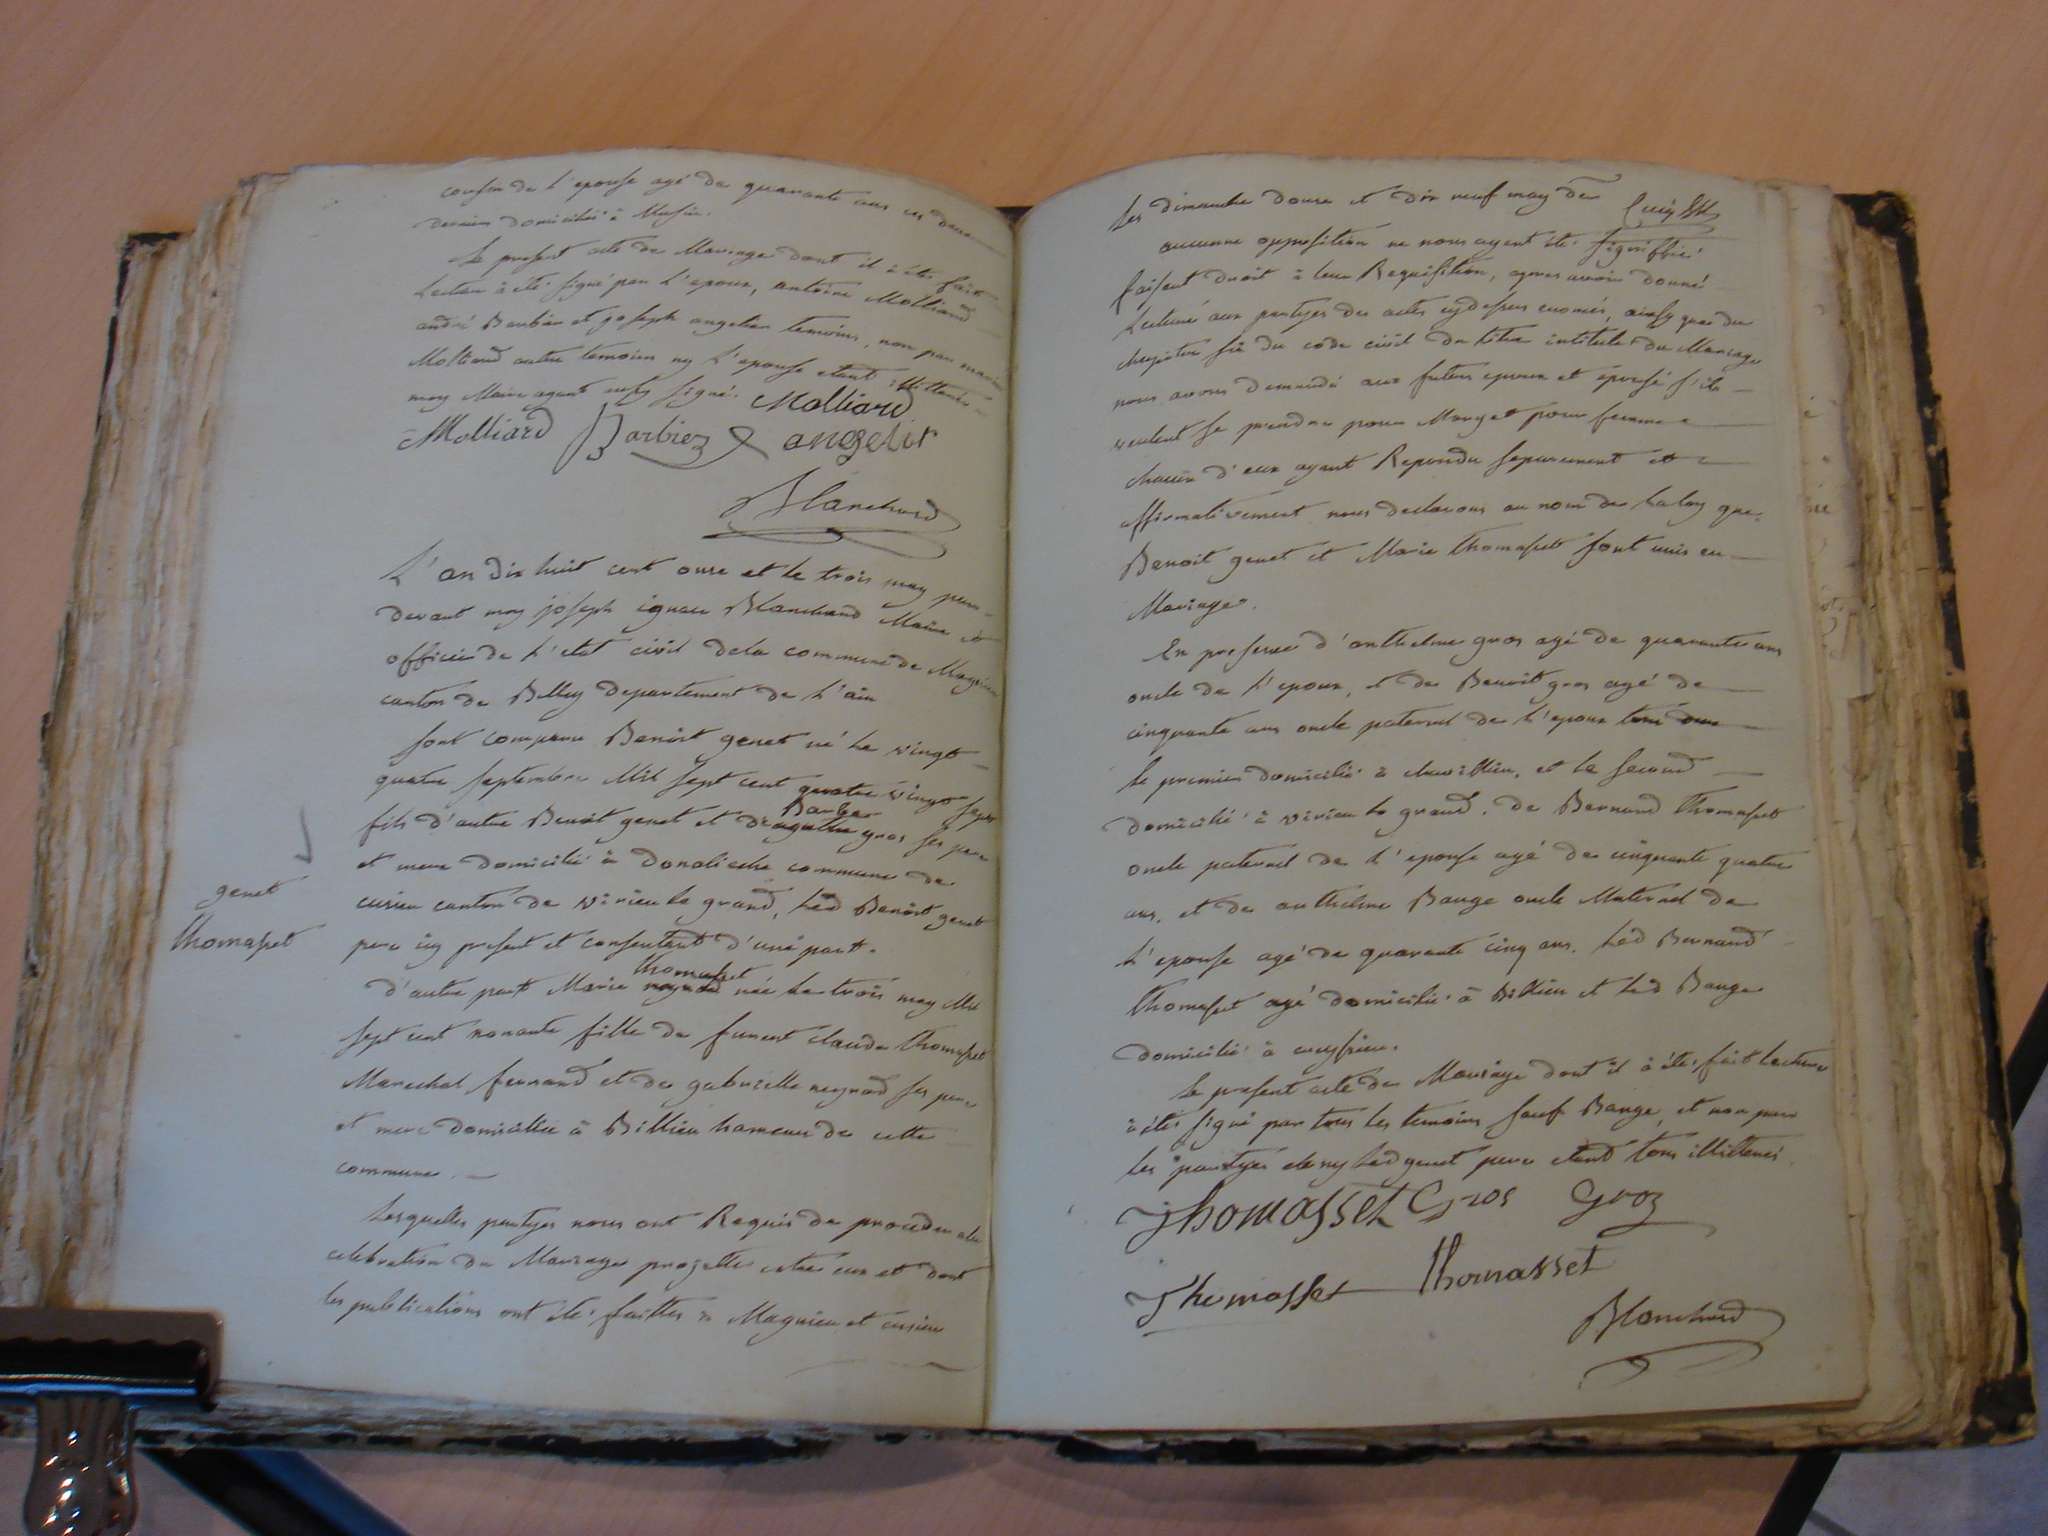 cousin de l'epouse agé de quarante ans ces deux
derniers domiciliés à Musin.
Le present acte de Mariage dont il à été fait
Lecture à été signé par l'epoux, antoine Molliard
andré Barbier et joseph angelier temoins, non par
Molliard autre temoin ny l'epouse etant illitteré
moy Maire ayant aussy signé. Molliard
Molliard Barbier angelir
Blanchard
L'an dix huit cent onze et le trois may par
devant moy joseph ignace Blanchard Maire et
officier de l'etat civil dela commune de Magnieu
canton de Belley departement de l'ain
sont comparu Benoit genet né le vingt
quatre septembre Mil sept cent quatre vingt sept
Barbe
fils d'autre Benoit genet et de agathe gros ses pere
et mere domicilié à donalieche commune de
cuzieu canton de virieu le grand, led Benoit genet
pere icy present et consentant d'une part.
genet
thomasset
thomasset
d'autre part Marie neyrod née le trois may Mil
sept cent nonante fille de funent claude thomasset
Marechal ferrand et de gabrielle neyrod ses pere
et mere domiciliée à Billieu hameau de cette
commune.
Lesquelles partyes nous ont Requis de proceder ala
celebration du Mariage projetté entre eux et dont
les publications ont été faittes à Magnieu et cusieu
les dimanche douze et dix neuf may der
aucunne opposition ne nous ayent été signiffiée
faisent droit à leur Requisition, apres avoir donné
Lecture aux partyes des actes cydessus enomés, ainsy que du
chapitre six du code civil du titre intitulé du Mariage
nous avons demandé aux futurs epoux et épouse s'ils
veulent se prendre pour Mary et pour femme
chacun d'eux ayant Repondu separement et
affirmativement nous declarons au nom de La loy que
Benoit genet et Marie thomasset sont unis en
Mariage.
En presence d'anthelme gros agé de quarante ans
oncle de l'epoux, et de Benoit gros agé de
cinquante ans oncle paternel de l'epoux
le premier domicilié à chavillieu, et le second
domicilié à virieu le grand. de Bernard thomasset
oncle paternel de l'epouse agé de cinquante quatre
ans, et de anthelme Bauge oncle Maternel de
l'epouse agé de quarante cinq ans. Led Bernard
thomasset agé domicilié à Billieu et Led Bauge
domicilié à creyssieu.
Le present acte de Mariage dont il à été fait Lecture
à été signé par tous les temoins sauf Bauge, et non par
les partyes ny Led genet pere etant tous illitterés.
Thomasset Gros Groz
Thomasset Thomasset
Blanchard